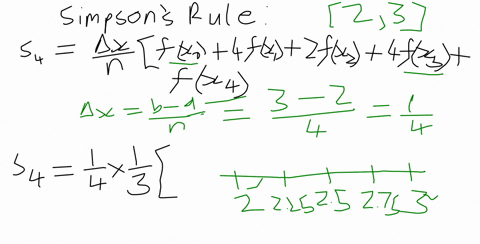 Simpson's Rule: [2,3]
S₄ = Δx/n [f(x₀)+4f(x₁)+2f(x₂)+4f(x₃)+
f(x₄)
Δx = b-a/n = 3-2/4 = 1/4
S₄ = 1/4 × 1/3 [
2 2.25 2.5 2.75 3